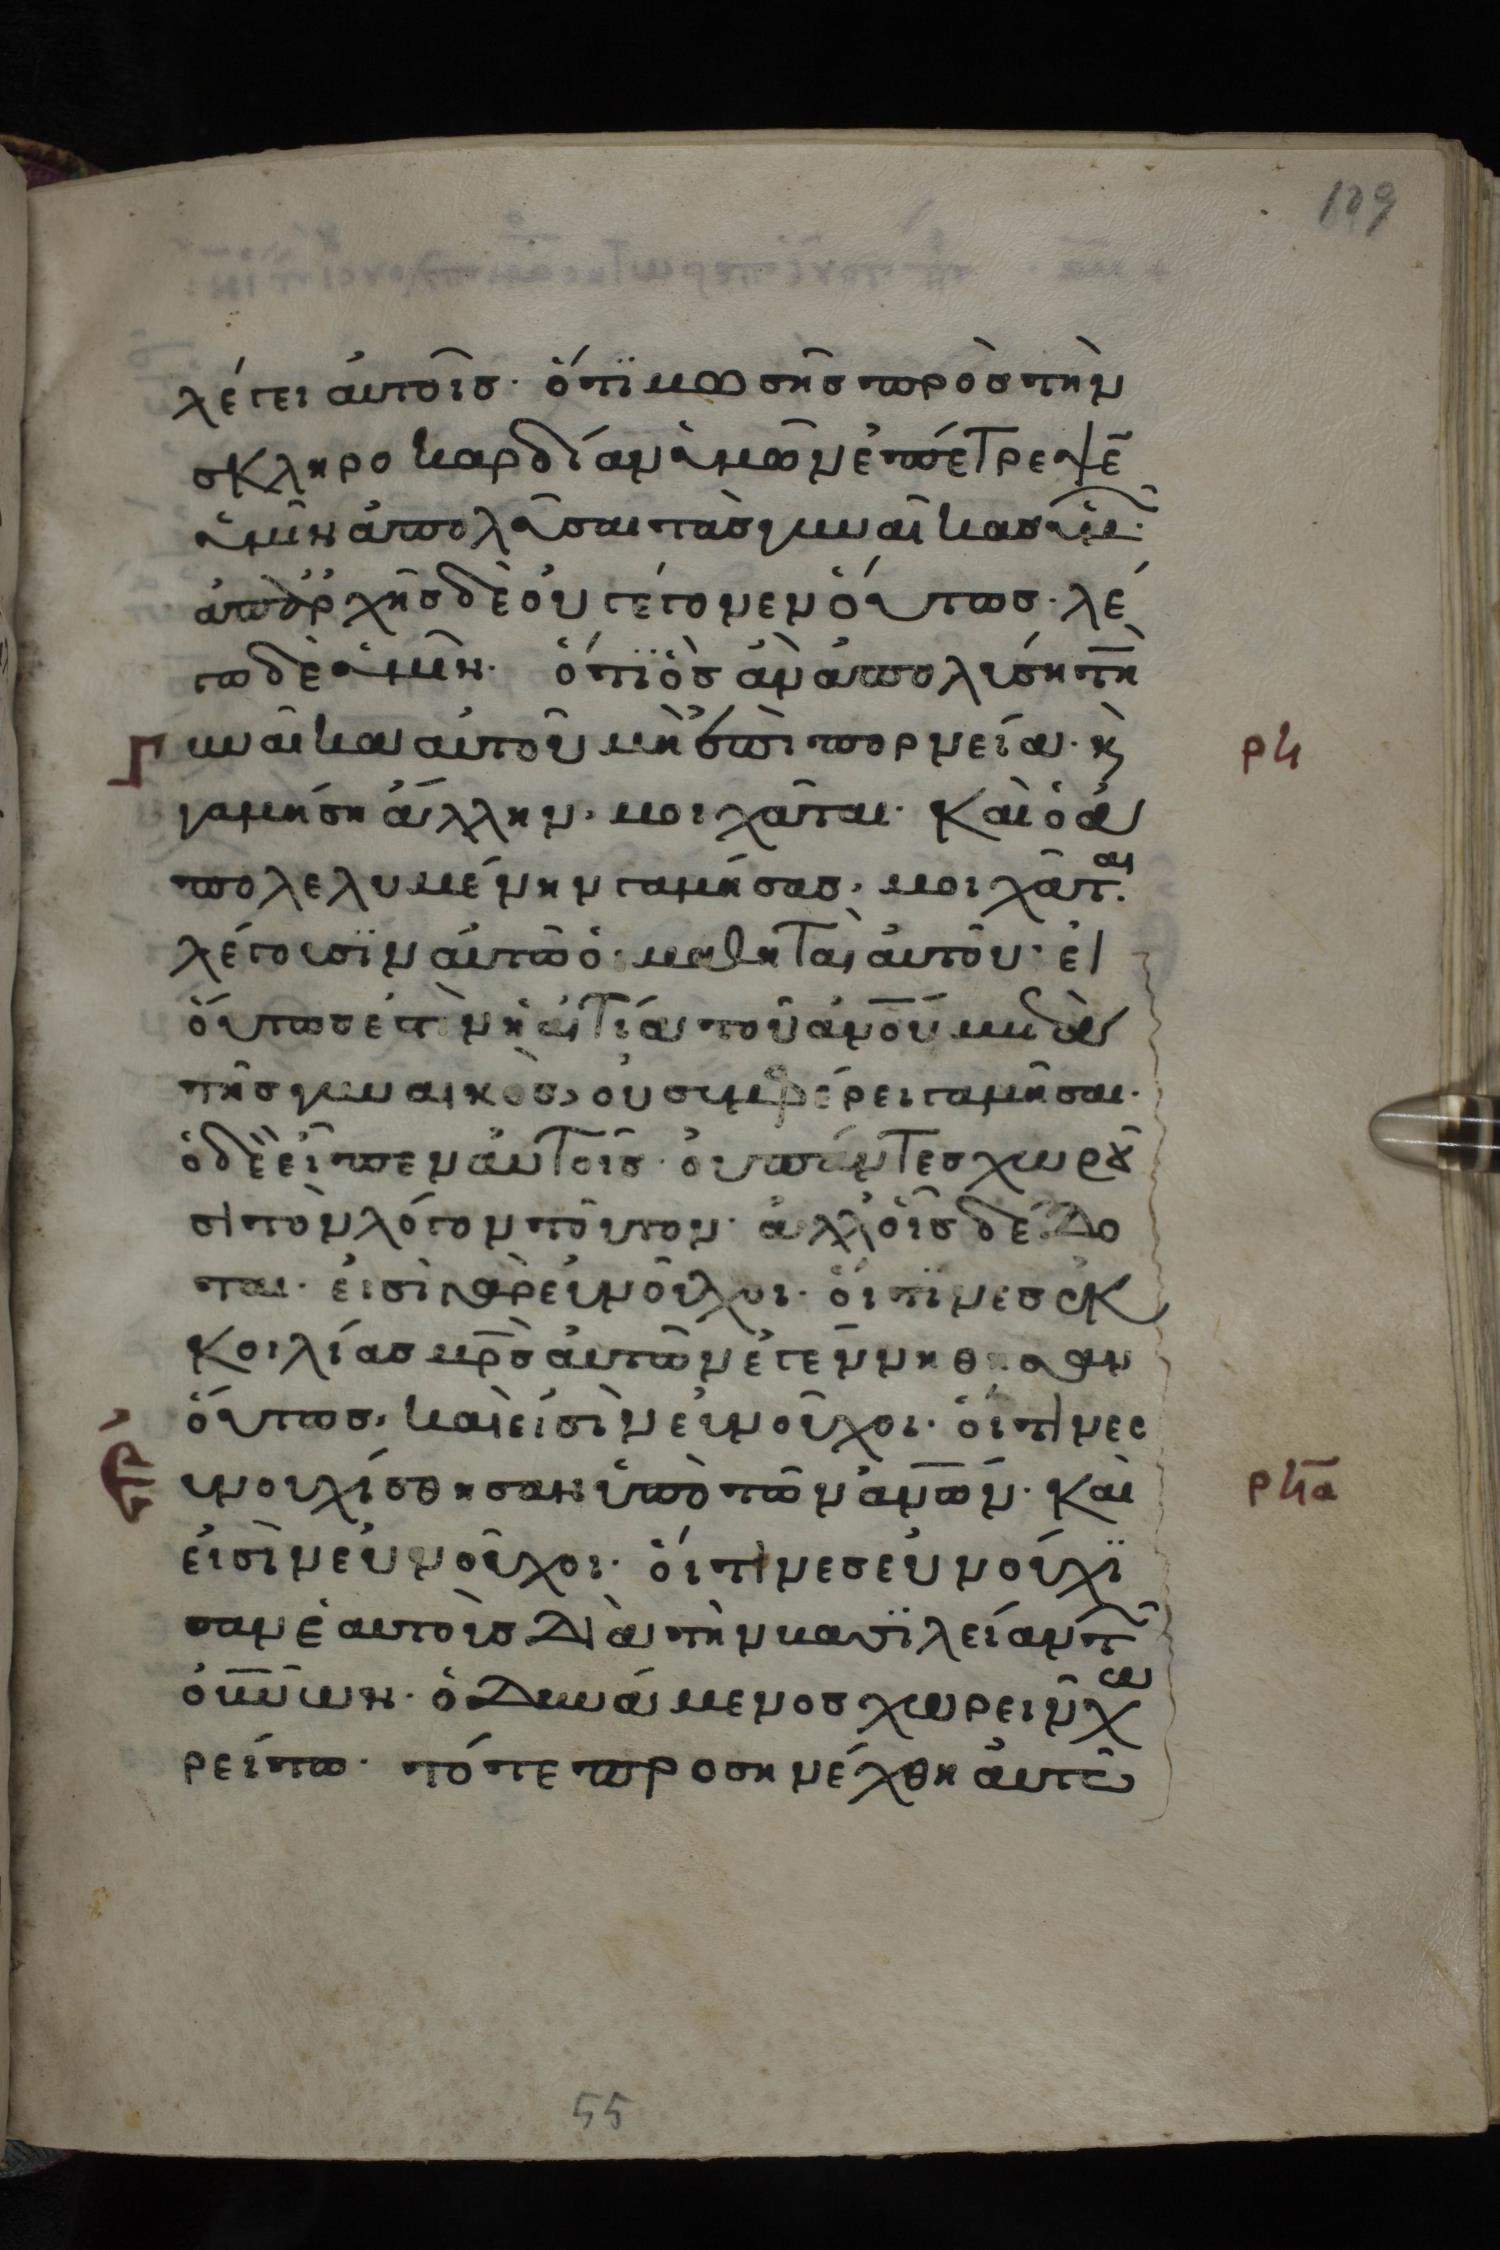 109
λέγει ἀυτοῖσ· ὅτϊ μωσῆσ πρὸσ τὴν
σκληροκαρδίαν ὑμῶν ἐπέτρεψε
ὑμῖν ἀπολῦσαι τὰσ γυναῖκασ ὑμ·
ἀπὀρχῆσ δὲ ὀυ γέγονεν ὅυτωσ· λέ
γω δὲ ὑμῖν· ὅτϊ ὃσ ἀν ἀπολύση τῆ
γυναῖκα ἀυτοῦ μὴ ἐπὶ πορνεία· κ
γαμήση ἄλλην, μοιχᾶται· καὶ ὁ ἀ
πολελυμένην γαμήσασ, μοιχᾶται·
λέγουσϊν ἀυτῶ ὁι μαθηταὶ ἀυτοῦ· ἐι
ὅυτωσ ἐστὶν ἡ ἀιτία τοῦ ἀνου μετὰ
τῆσ γυναικὸσ, ὀυ συμφέρει γαμῆσαι·
ὁ δὲ εἶπεν ἀυτοῖσ· ὀυ πάντεσ χωροῦ
σι τὸν λόγον τοῦτον· ἀλλ ὁῖσ δέδο
ται· ἐισὶ γὰρ ἐυνοῦχοι· ὅιτϊνεσ ἐκ
κοιλίασ μρσ ἀυτῶν ἐγεννήθησαν
ὅυτωσ, καὶ ἐισὶν ἐυνοῦχοι· ὅιτινεσ
ευνουχίσθησαν ὑπὸ τῶν ἀνων· καὶ
ἐισὶν ἐυνοῦχοι· ὅιτινεσ ἐυνούχϊ
σαν ἑαυτοὺσ διὰ τὴν βασϊλείαν τ
ὀυνῶν· ὁ δυνάμενοσ χωρεῖν χω
ρείτω· τότε προσηνέχθη ἀυτῶ
55